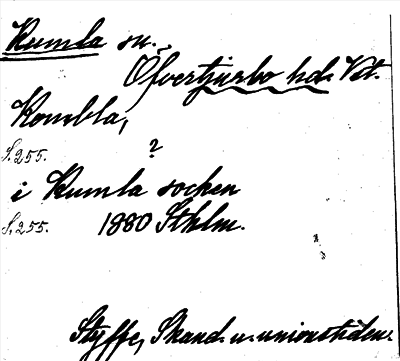 Kumla sn.
Öfvertjurbo hd. Vst.
Kombla,
S. 255. ?
i Kumla socken
S. 255. 1880 Sthlm.
Styffe, Skand. u. unionstiden.